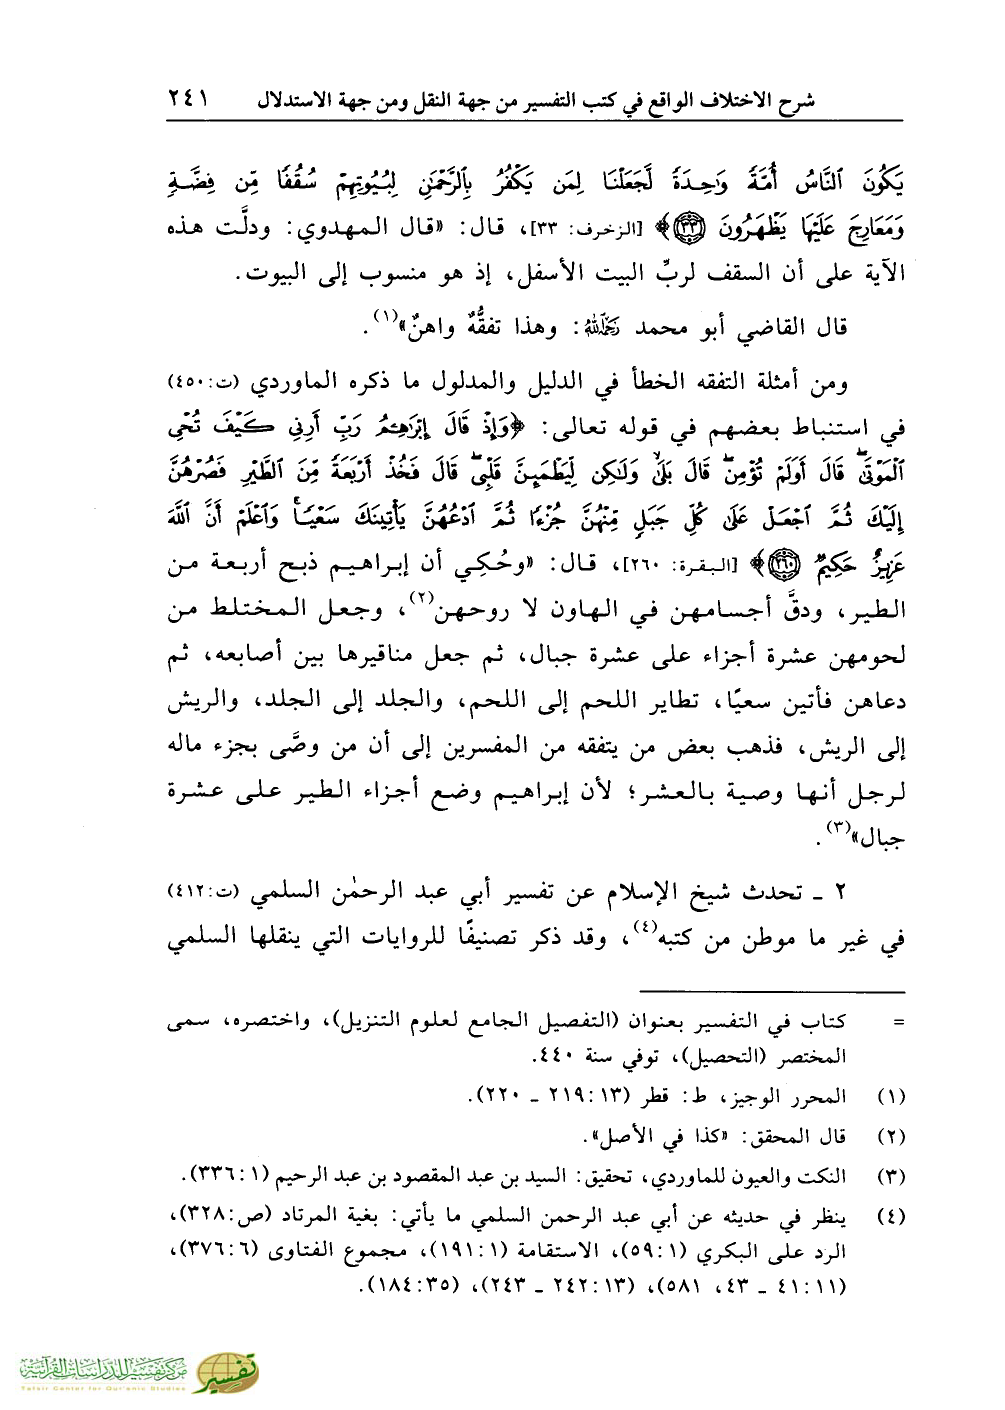 شرح الاختلاف الواقع في كتب التفسير من جهة النقل ومن جهة الاستدلال ٢٤١
يَكُونَ ٱلنَّاسُ أُمَّةً وَٰحِدَةً لَّجَعَلْنَا لِمَن يَكْفُرُ بِٱلرَّحْمَٰنِ لِبُيُوتِهِمْ سُقُفًا مِّن فِضَّةٍ
وَمَعَارِجَ عَلَيْهَا يَظْهَرُونَ ٣٣﴾ [الزخرف: ٣٣]، قال: «قال المهدوي: ودلَّت هذه
الآية على أن السقف لربِّ البيت الأسفل، إذ هو منسوب إلى البيوت.
قال القاضي أبو محمد رَحِمَهُ ٱللَّهُ: وهذا تفقُّهٌ واهنٌ»(١).
ومن أمثلة التفقه الخطأ في الدليل والمدلول ما ذكره الماوردي (ت:٤٥٠)
في استنباط بعضهم في قوله تعالى: ﴿وَإِذْ قَالَ إِبْرَٰهِـۧمُ رَبِّ أَرِنِي كَيْفَ تُحْيِ
ٱلْمَوْتَىٰۖ قَالَ أَوَلَمْ تُؤْمِنۖ قَالَ بَلَىٰ وَلَٰكِن لِّيَطْمَئِنَّ قَلْبِيۖ قَالَ فَخُذْ أَرْبَعَةً مِّنَ ٱلطَّيْرِ فَصُرْهُنَّ
إِلَيْكَ ثُمَّ ٱجْعَلْ عَلَىٰ كُلِّ جَبَلٍ مِّنْهُنَّ جُزْءًا ثُمَّ ٱدْعُهُنَّ يَأْتِينَكَ سَعْيًاۚ وَٱعْلَمْ أَنَّ ٱللَّهَ
عَزِيزٌ حَكِيمٌ ٢٦٠﴾ [البقرة: ٢٦٠]، قال: «وحُكِي أن إبراهيم ذبح أربعة من
الطير، ودقَّ أجسامهن في الهاون لا روحهن(٢)، وجعل المختلط من
لحومهن عشرة أجزاء على عشرة جبال، ثم جعل مناقيرها بين أصابعه، ثم
دعاهن فأتين سعيًا، تطاير اللحم إلى اللحم، والجلد إلى الجلد، والريش
إلى الريش، فذهب بعض من يتفقه من المفسرين إلى أن من وصَّى بجزء ماله
لرجل أنها وصية بالعشر؛ لأن إبراهيم وضع أجزاء الطير على عشرة
جبال»(٣).
٢ ـ تحدث شيخ الإسلام عن تفسير أبي عبد الرحمٰن السلمي (ت:٤١٢)
في غير ما موطن من كتبه(٤)، وقد ذكر تصنيفًا للروايات التي ينقلها السلمي
= كتاب في التفسير بعنوان (التفصيل الجامع لعلوم التنزيل)، واختصره، سمى
المختصر (التحصيل)، توفي سنة ٤٤٠.
(١) المحرر الوجيز، ط: قطر (١٣:٢١٩ ـ ٢٢٠).
(٢) قال المحقق: «كذا في الأصل».
(٣) النكت والعيون للماوردي، تحقيق: السيد بن عبد المقصود بن عبد الرحيم (١:٣٣٦).
(٤) ينظر في حديثه عن أبي عبد الرحمن السلمي ما يأتي: بغية المرتاد (ص:٣٢٨)،
الرد على البكري (١:٥٩)، الاستقامة (١:١٩١)، مجموع الفتاوى (٦:٣٧٦)،
(١١:٤١ ـ ٤٣، ٥٨١)، (١٣:٢٤٢ ـ ٢٤٣)، (٣٥:١٨٤).
مركز تفسير للدراسات القرآنية
تفسير
Tafsir Center for Qur'anic Studies